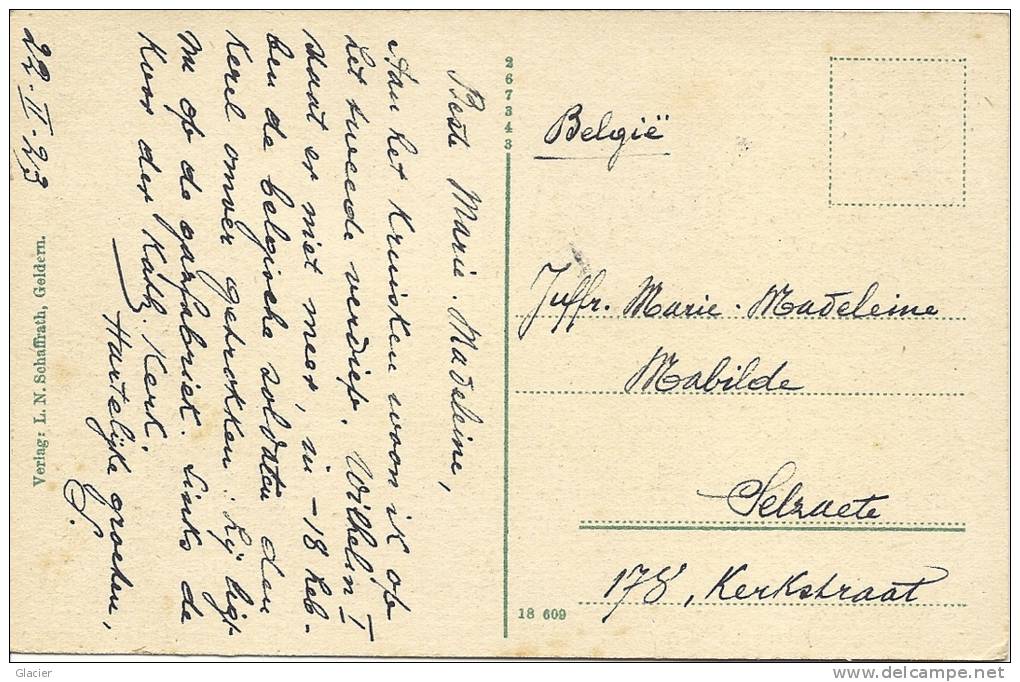 Beste Marie-Madeleine,
Aan het Kruisken woon ik op
het tweede verdiep. Wilhelm I
staat er niet meer, in -18 heb-
ben de belgische soldaten den
Kerel omver getrokken. Hij ligt
nu op de gasfabriek. Links de
Koor der Kath. Kerk.
Hartelijke groeten,
22.II.23
Verlag: L. N. Schaffrath, Geldern.
267343
België
Juffr. Marie-Madeleine
Mabilde
Selzaete
178, Kerkstraat
18 609
Glacier
www.delcampe.net